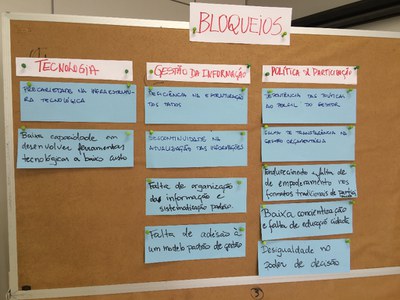 BLOQUEIOS
TECNOLOGIA
PRECARIEDADE NA
TECNOLÓGICA
Baixa capacidade em
desenvolver ferramentas
tecnológicas a baixo custo
GESTÃO DA INFORMAÇÃO
DEFICIÊNCIA NA ESTRUTURAÇÃO
DOS DADOS
DESCONTINUIDADE NA
ATUALIZAÇÃO DAS INFORMAÇÕES
Falta de organização
das informação e
sistematização
Falta de adesão à
um modelo padrão de gestão
POLÍTICA & PARTICIPAÇÃO
DO GESTOR
DE TRANSPARÊNCIA NA
GESTÃO ORÇAMENTÁRIA
e falta de
de empoderamento nos
formatos tradicionais de
Baixa conscientização
e falta de educação cidadã
Desigualdade no
poder de decisão
3